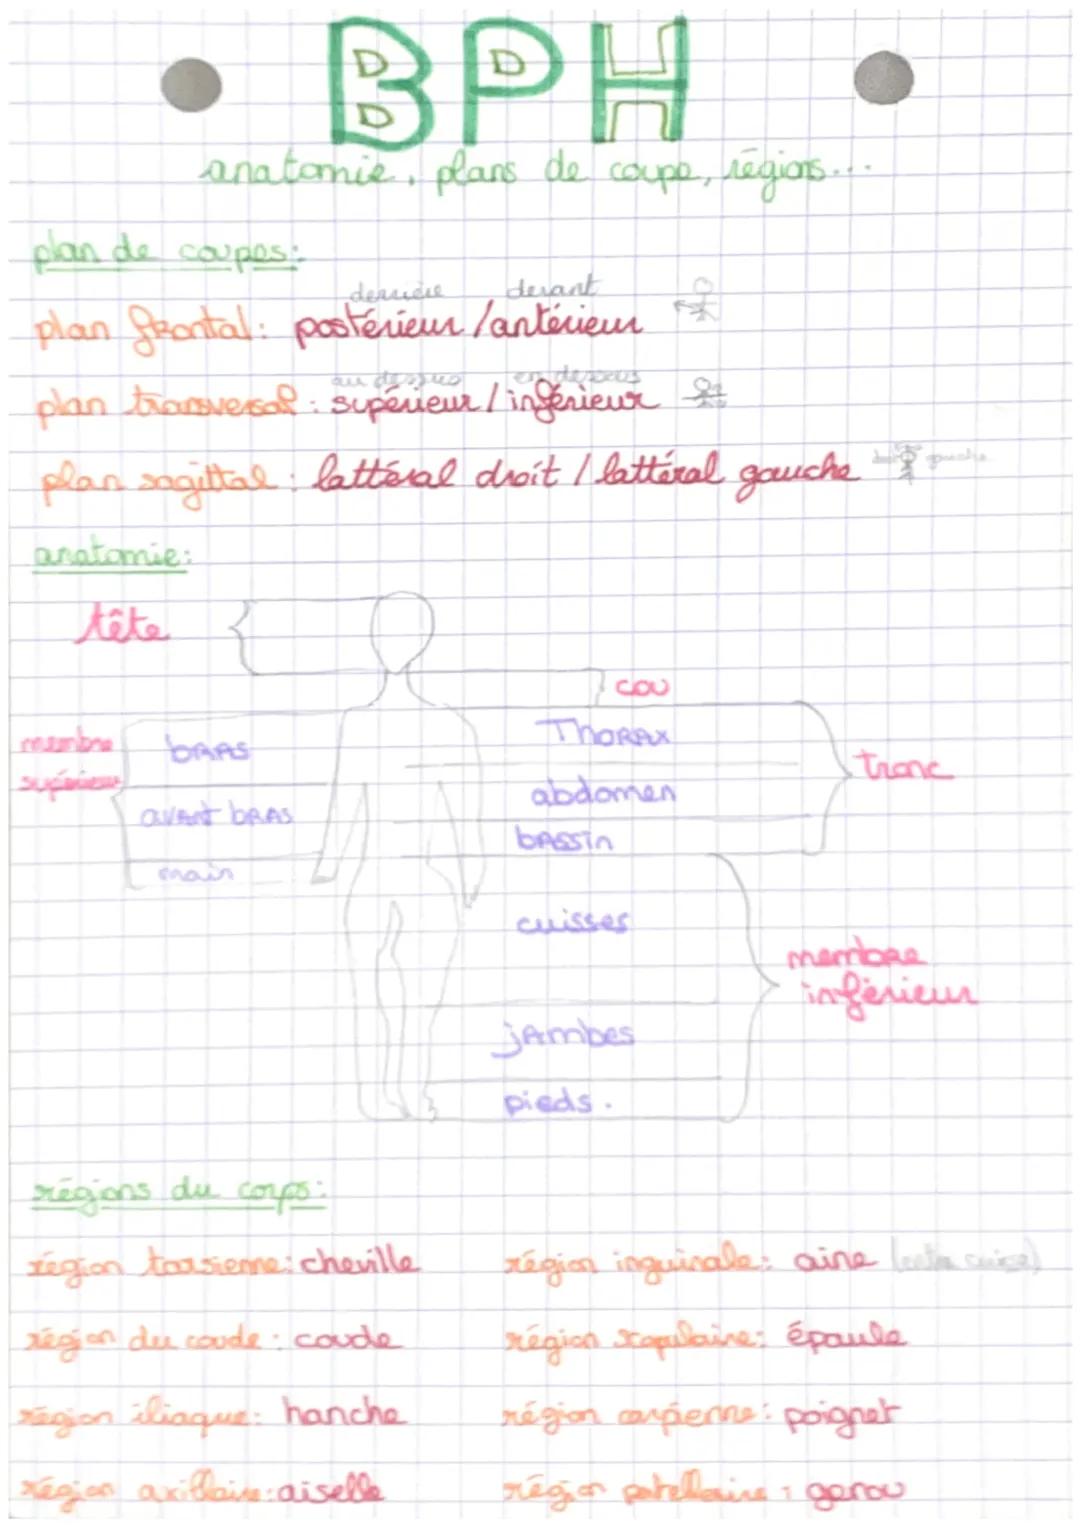 BPH
anatomie, plans de coupe, régions...
plan de coupes:
derrière devant
plan frontal: postérieur / antérieur
au dessus en dessous
plan transversal: supérieur / inférieur
plan sagittal: lattéral droit / lattéral gauche droit gauche
anatomie:
tête
cou
membre
supérieur
bras
Thorax
tronc
avant bras
abdomen
bassin
main
cuisses
membre
inférieur
jambes
pieds.
régions du corps:
région tarsienne: cheville
région inguinale: aine (entre cuisse)
région du coude: coude
région scapulaire: épaule
région iliaque: hanche
région carpienne: poignet
région axillaire: aiselle
région patellaire: genou